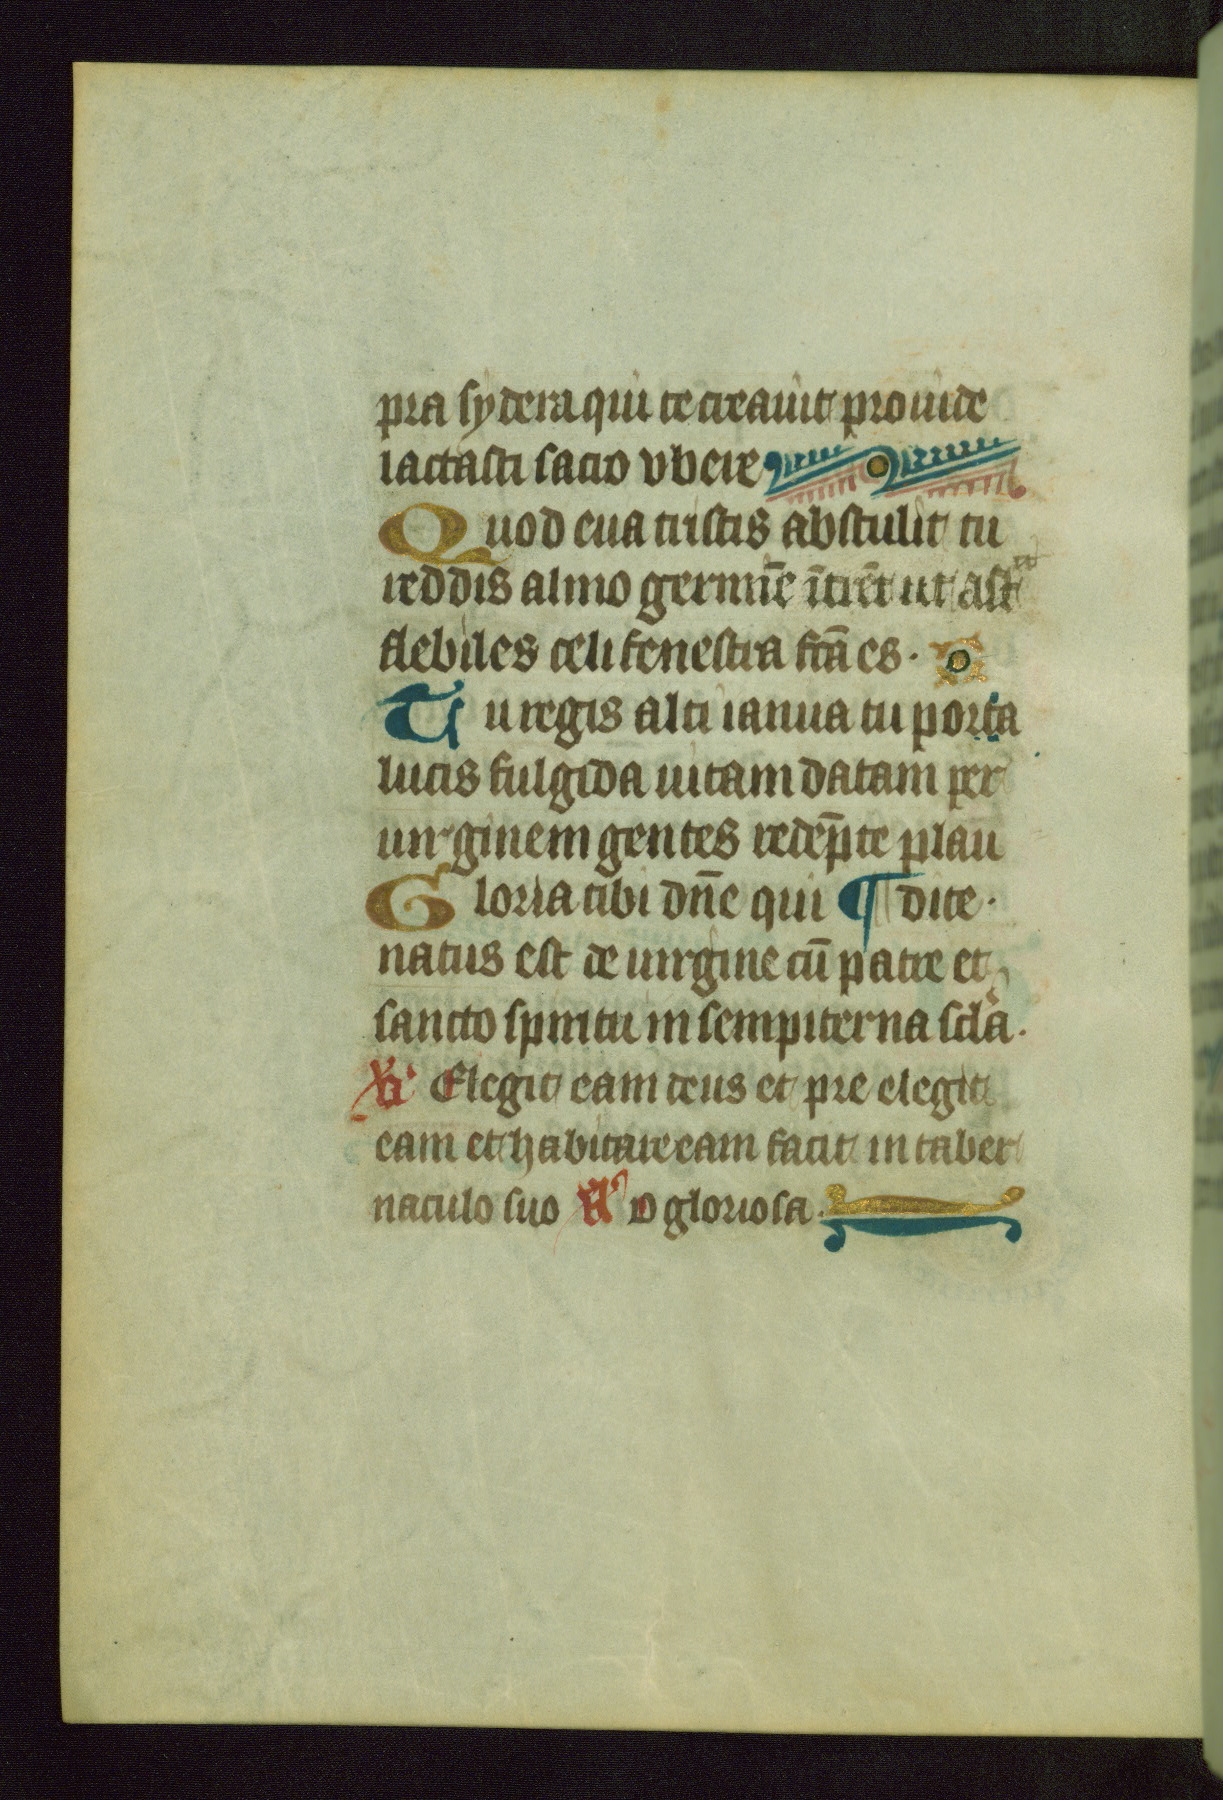 pra sydera qui te creauit prouide
iactasti sacro vbere
Quod eua tristis abstulit tu
reddis almo germīe ītrēt ut astra
flebiles celi fenestra fcā es.
Tu regis alti ianua tu porta
lucis fulgida uitam datam per
uirginem gentes redēpte plau
Gloria tibi dn̄e qui ¶ dite.
natus est de uirgine cū patre et
sancto spiritu in sempiterna scl̄a.
V̄ Elegit eam deus et pre elegit
eam et habitare eam facit in taber
naculo suo A' O gloriosa.